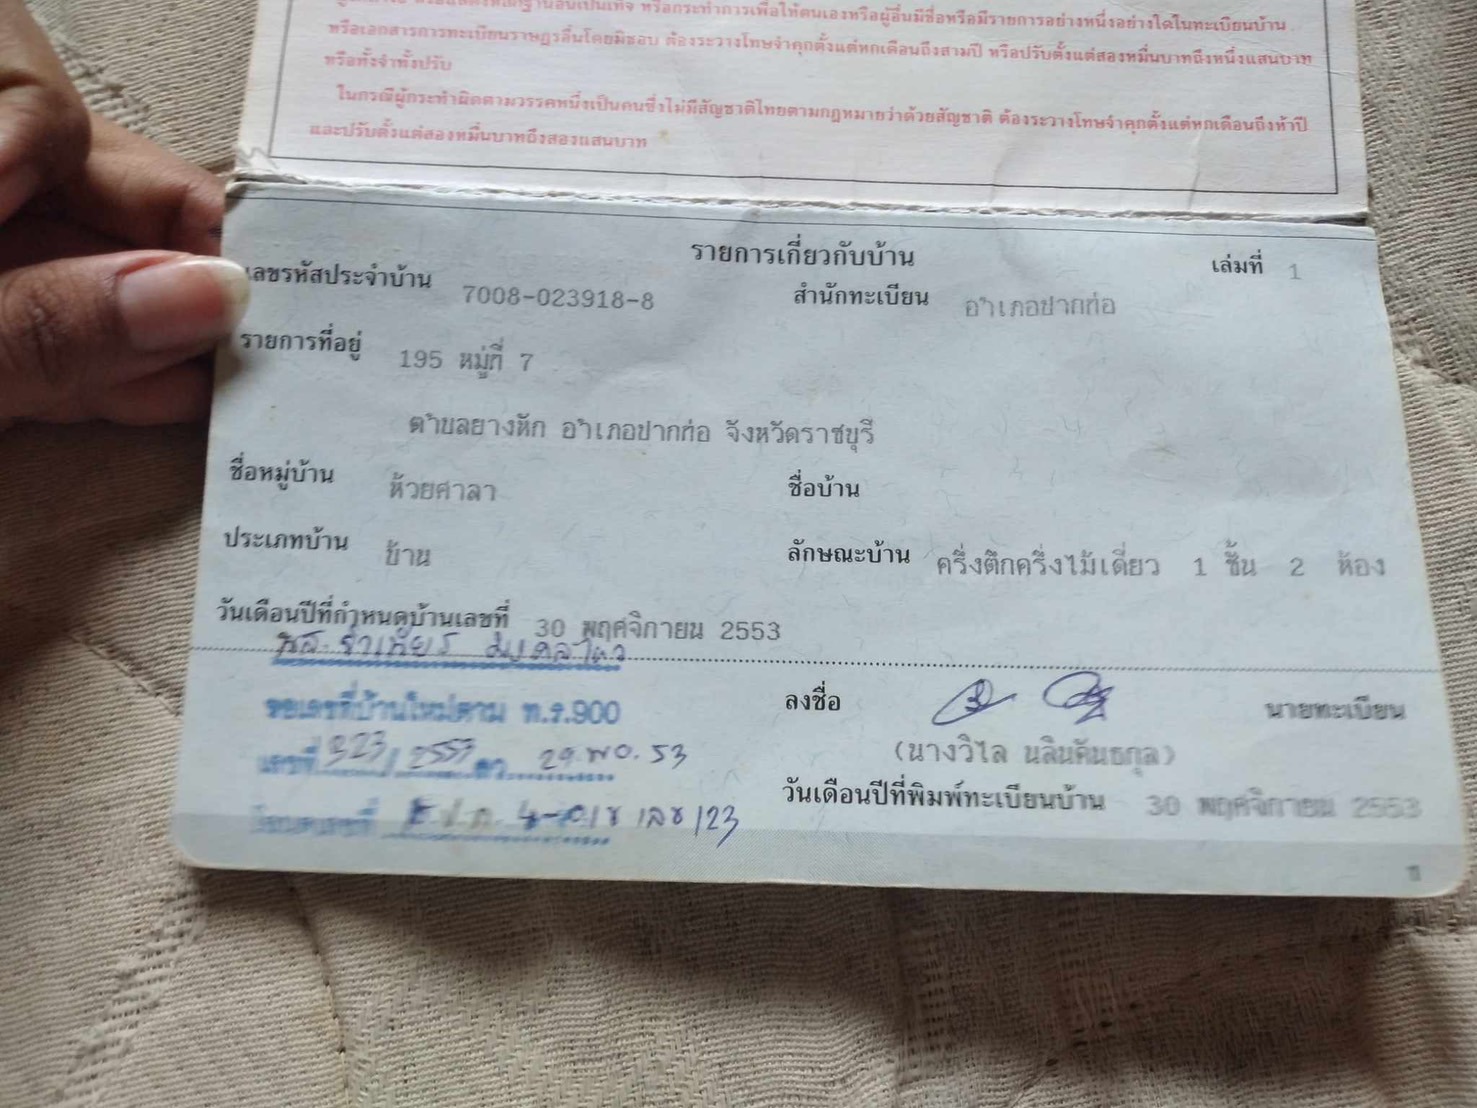 หรือกระทำการเพื่อให้ตนเองหรือผู้อื่นมีชื่อหรือมีรายการอย่างหนึ่งอย่างใดในทะเบียนบ้าน
หรือเอกสารการทะเบียนราษฎรอื่นโดยมิชอบ ต้องระวางโทษจำคุกตั้งแต่หกเดือนถึงสามปี หรือปรับตั้งแต่สองหมื่นบาทถึงหนึ่งแสนบาท
หรือทั้งจำทั้งปรับ
ในกรณีผู้กระทำผิดตามวรรคหนึ่งเป็นคนซึ่งไม่มีสัญชาติไทยตามกฎหมายว่าด้วยสัญชาติ ต้องระวางโทษจำคุกตั้งแต่หกเดือนถึงห้าปี
และปรับตั้งแต่สองหมื่นบาทถึงสองแสนบาท
รายการเกี่ยวกับบ้าน เล่มที่ 1
เลขรหัสประจำบ้าน 7008-023918-8 สำนักทะเบียน อำเภอปากท่อ
รายการที่อยู่ 195 หมู่ที่ 7
ตำบลยางหัก อำเภอปากท่อ จังหวัดราชบุรี
ชื่อหมู่บ้าน ห้วยศาลา ชื่อบ้าน
ประเภทบ้าน บ้าน ลักษณะบ้าน ครึ่งตึกครึ่งไม้เดี่ยว 1 ชั้น 2 ห้อง
วันเดือนปีที่กำหนดบ้านเลขที่ 30 พฤศจิกายน 2553
ขอเลขที่บ้านใหม่ตาม ท.ร.900 ลงชื่อ นายทะเบียน
เลขที่ 323/2553 29 พย. 53 (นางวิไล นลินคันธกุล)
วันเดือนปีที่พิมพ์ทะเบียนบ้าน 30 พฤศจิกายน 2553
เลข 123